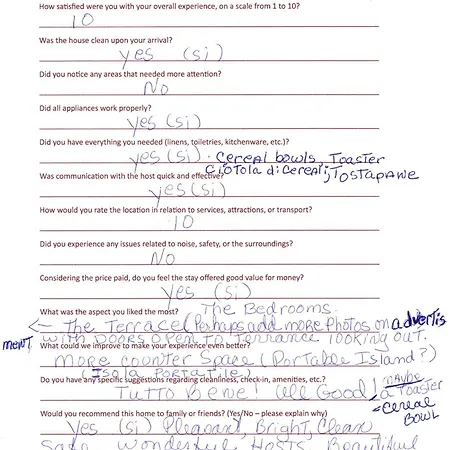 How satisfied were you with your overall experience, on a scale from 1 to 10?
10
Was the house clean upon your arrival?
yes (si)
Did you notice any areas that needed more attention?
No
Did all appliances work properly?
yes (si)
Did you have everything you needed (linens, toiletries, kitchenware, etc.)?
yes (si) . Cereal bowls, Toaster
Ciotola di Cereali, Tostapane
Was communication with the host quick and effective?
yes (si)
How would you rate the location in relation to services, attractions, or transport?
10
Did you experience any issues related to noise, safety, or the surroundings?
No
Considering the price paid, do you feel the stay offered good value for money?
yes (si)
What was the aspect you liked the most? The Bedrooms.
← The Terrace (Perhaps add more Photos on advertis
ment with Doors open to Terrance looking out.
What could we improve to make your experience even better?
More counter Space (Portable Island?)
(Isola Portatile)
Do you have any specific suggestions regarding cleanliness, check-in, amenities, etc.? maybe
Tutto Bene! All Good! a Toaster
Cereal
Bowl
Would you recommend this home to family or friends? (Yes/No – please explain why)
Yes (si) Pleasant, Bright, Clean
Safe Wonderful Hosts Beautiful